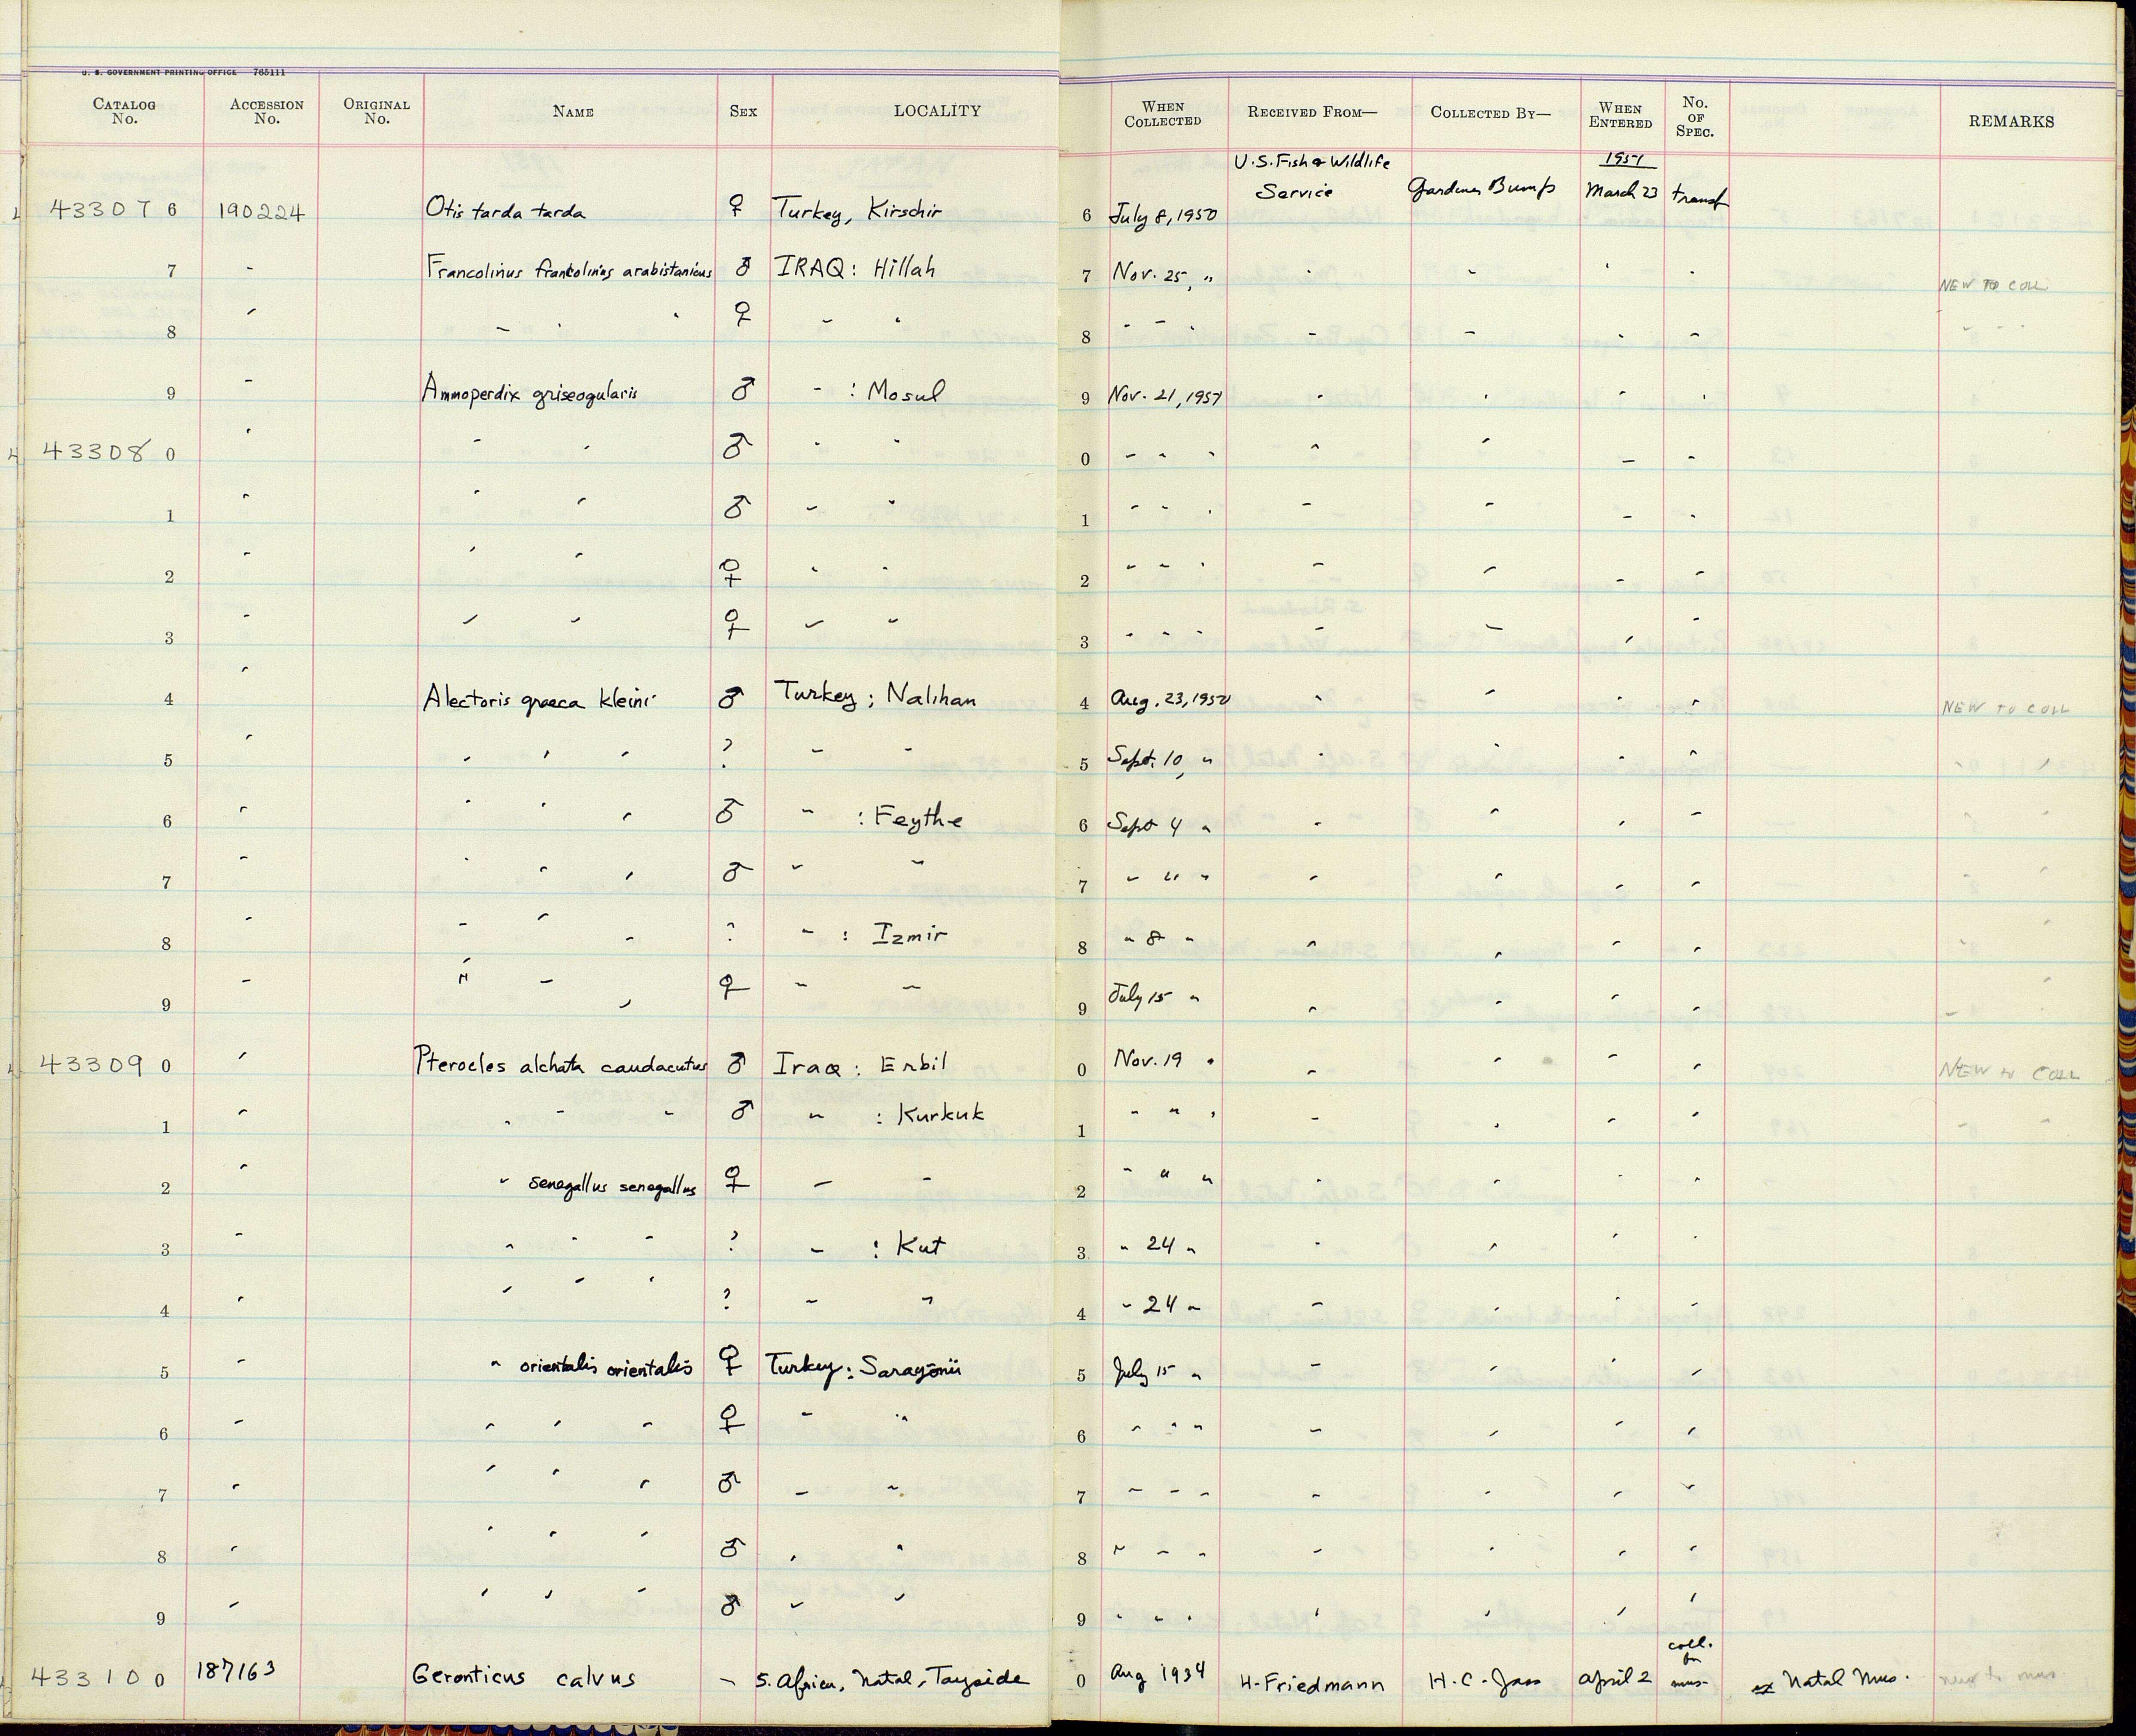 U. S. GOVERNMENT PRINTING OFFICE 765111
CATALOG No. ACCESSION No. ORIGINAL No. NAME SEX LOCALITY WHEN COLLECTED RECEIVED FROM— COLLECTED BY— WHEN ENTERED No. OF SPEC. REMARKS
U.S. Fish & Wildlife 1951
433076 190224 Otis tarda tarda ♀ Turkey, Kirschir 6 July 8, 1950 Service Gardiner Bump March 23 transf
7 " Francolinus francolinus arabistanicus ♂ IRAQ: Hillah 7 Nov. 25, " " " " " NEW TO COLL
8 " " " " ♀ " " 8 " " " " " " " " " "
9 " Ammoperdix griseogularis ♂ " : Mosul 9 Nov. 21, 1951 " " " "
433080 " " " ♂ " " 0 " " " " " " "
1 " " " ♂ " " 1 " " " " " " "
2 " " " ♀ " " 2 " " " " " " "
3 " " " ♀ " " 3 " " " " " " "
4 " Alectoris graeca kleini ♂ Turkey; Nalihan 4 Aug. 23, 1950 " " " " NEW TO COLL
5 " " " " ? " " 5 Sept. 10, " " " " "
6 " " " " ♂ " : Feythe 6 Sept 4 " " " " "
7 " " " " ♂ " " 7 " " " " " " "
8 " " " " ? " : Izmir 8 " 8 " " " " " "
9 " " " " ♀ " " 9 July 15 " " " " " " "
433090 " Pterocles alchata caudacutus ♂ Iraq: Erbil 0 Nov. 19 " " " " " NEW to COLL
1 " " " " ♂ " : Kurkuk 1 " " " " " " " " "
2 " " senegallus senegallus ♀ " " 2 " " " " " " "
3 " " " " ? " : Kut 3 " 24 " " " " "
4 " " " " ? " " 4 " 24 " " " " "
5 " " orientalis orientalis ♀ Turkey: Sarayönü 5 July 15 " " " " "
6 " " " " ♀ " " 6 " " " " " " "
7 " " " " ♂ " " 7 " " " " " " "
8 " " " " ♂ " " 8 " " " " " " "
9 " " " " ♂ " " 9 " " " " " " "
coll.
for
433100 187163 Geronticus calvus — S. Africa, Natal, Tayside 0 Aug 1934 H. Friedmann H. C. April 2 mus. ex Natal Mus. new to mus